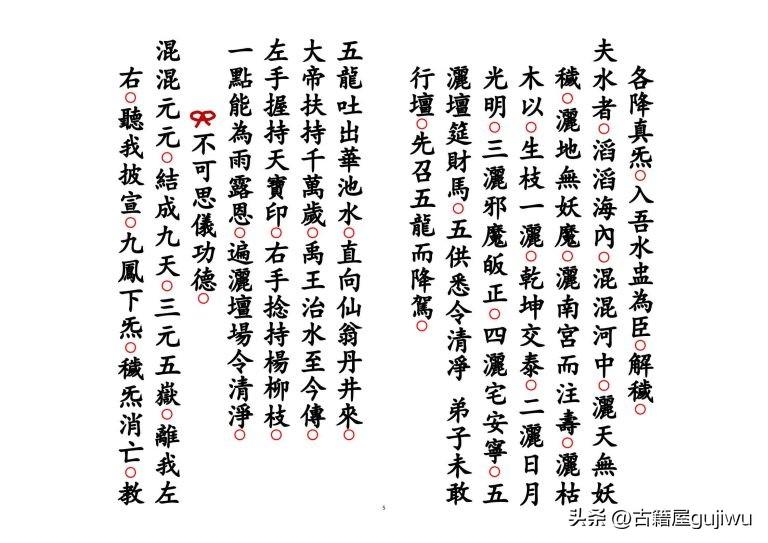 各降真炁○入吾水盅為臣○解穢○
夫水者○滔滔海內○混混河中○灑天無妖
穢○灑地無妖魔○灑南宮而注壽○灑枯
木以○生枝一灑○乾坤交泰○二灑日月
光明○三灑邪魔皈正○四灑宅安寧○五
灑壇筵財馬○五供悉令清凈 弟子未敢
行壇○先召五龍而降駕○
五龍吐出華池水○直向仙翁丹井來○
大帝扶持千萬歲○禹王治水至今傳○
左手握持天寶印○右手捻持楊柳枝○
一點能為雨露恩○遍灑壇場令清淨○
不可思儀功德○
混混元元○結成九天○三元五嶽○離我左
右○聽我披宣○九鳳下炁○穢炁消亡○教
5
头条 @古籍屋gujiwu